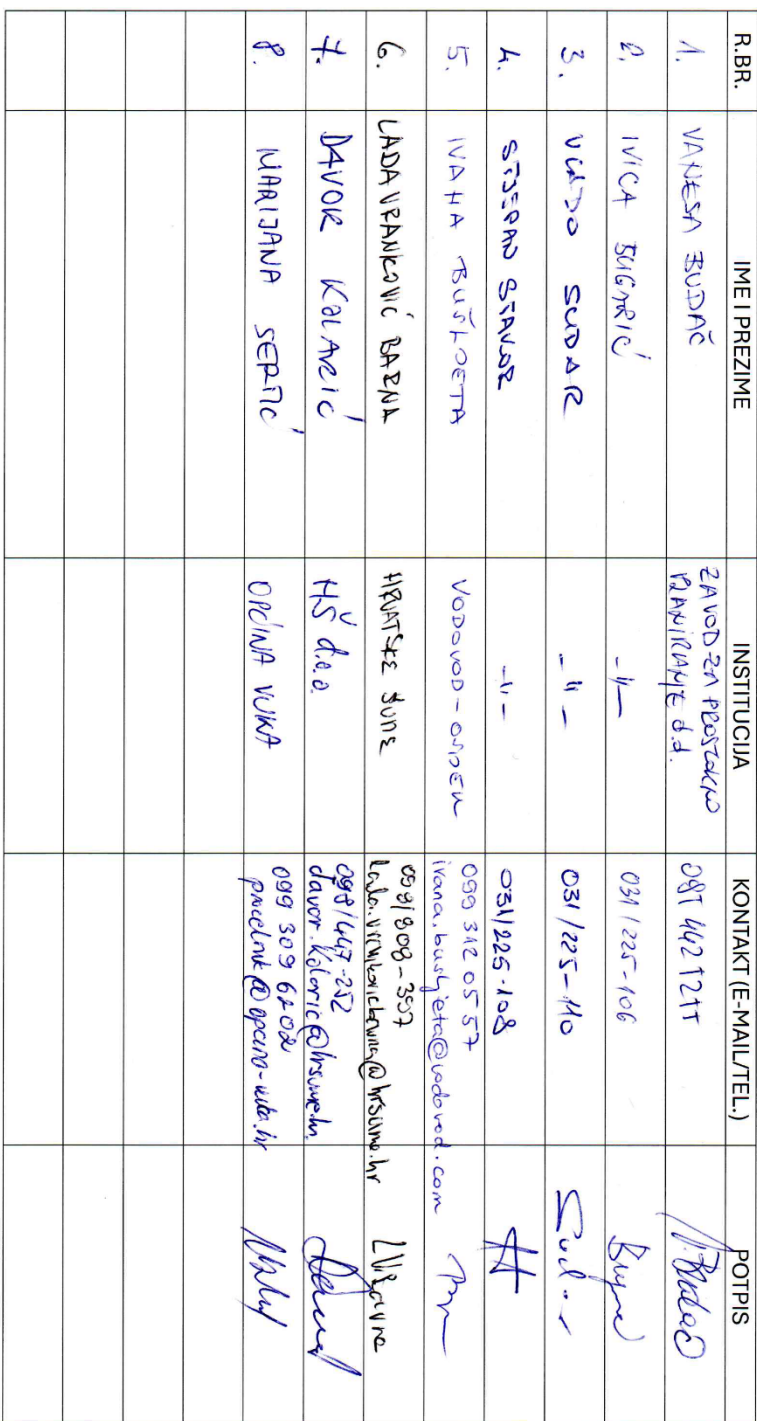 R.BR. IME I PREZIME INSTITUCIJA KONTAKT (E-MAIL/TEL.) POTPIS
1. VANESA BUDAČ ZAVOD ZA PROSTORNO
PLANIRANJE d.d.
2. IVICA BUGARIĆ -||- 031/225-106
3. VLADO SUDAR -||- 031/225-110 Sudar
4. STJEPAN STAVOR -||- 031/225-108
5. IVANA BUŠLJETA VODOVOD-OSIJEK 099 312 05 57
ivana.busljeta@vodovod.com
6. LADA VRANKOVIĆ BARNA HRVATSKE ŠUME 098/808-357
@hrsume.hr
7. DAVOR KOLARIĆ HŠ d.o.o. 098/447-252
davor.kolaric@hrsume.hr
8. MARIJANA SERTIĆ OPĆINA VUKA 099 309 6202
procelnik@opcina-vuka.hr